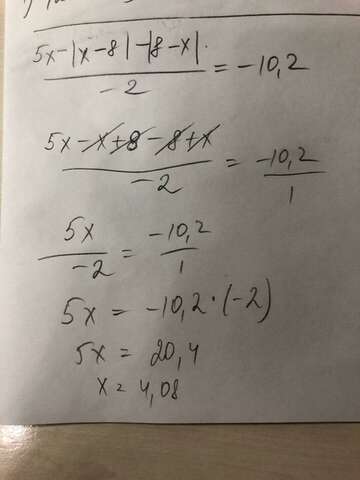 5x-|x-8|-|8-x|
/ -2 = -10,2
5x-x+8-8+x
/ -2 = -10,2 / 1
5x / -2 = -10,2 / 1
5x = -10,2·(-2)
5x = 20,4
x = 4,08